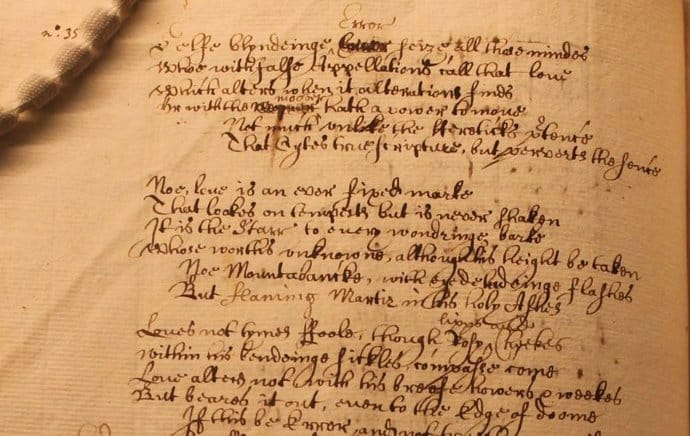 Error
nº. 35
Selfe blyndeinge seize all those mindes
Whoe with false Appellations call that love
Which alters when it alterations finds
moover
Or with the hath a power to move
Not much unlike the Hereticks ptence
That Cytes true Scripture, but perverts the sence
Noe, love is an ever fixed marke
That lookes on tempests but is never shaken
It is the Starr to every wondringe barke
Whose worths unknowne, although his height be taken
Noe Mountabancke, with eye deludeinge flashes
But flaming Martir in his holy Ashes
lipps and
Loves not tymes ffoole, though Rosy Cheekes
within his bendeinge sickles, compasse come
Love alters not with his breefe howers & weekes
But beares it out, even to the edge of doome
If this be Error, and not